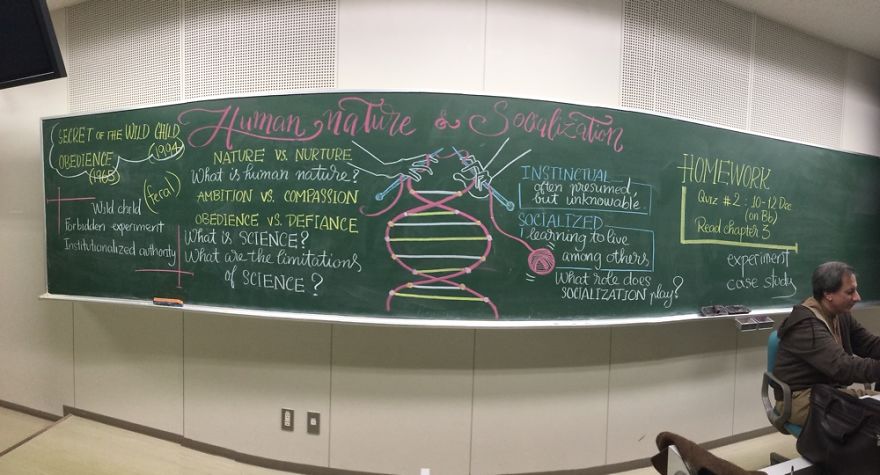 Human nature & Socialization
SECRET OF THE WILD CHILD
(1994)
OBEDIENCE
1965
(feral)
Wild child
Forbidden experiment
Institutionalized authority
NATURE VS. NURTURE
What is human nature?
AMBITION VS. COMPASSION
OBEDIENCE VS. DEFIANCE
What is SCIENCE?
What are the limitations
of SCIENCE?
INSTINCTUAL
often presumed,
but unknowable.
SOCIALIZED
learning to live
among others
What role does
SOCIALIZATION play?
HOMEWORK
QUIZ #2: 10-12 Dec
(on Bb)
Read chapter 3
experiment
case study